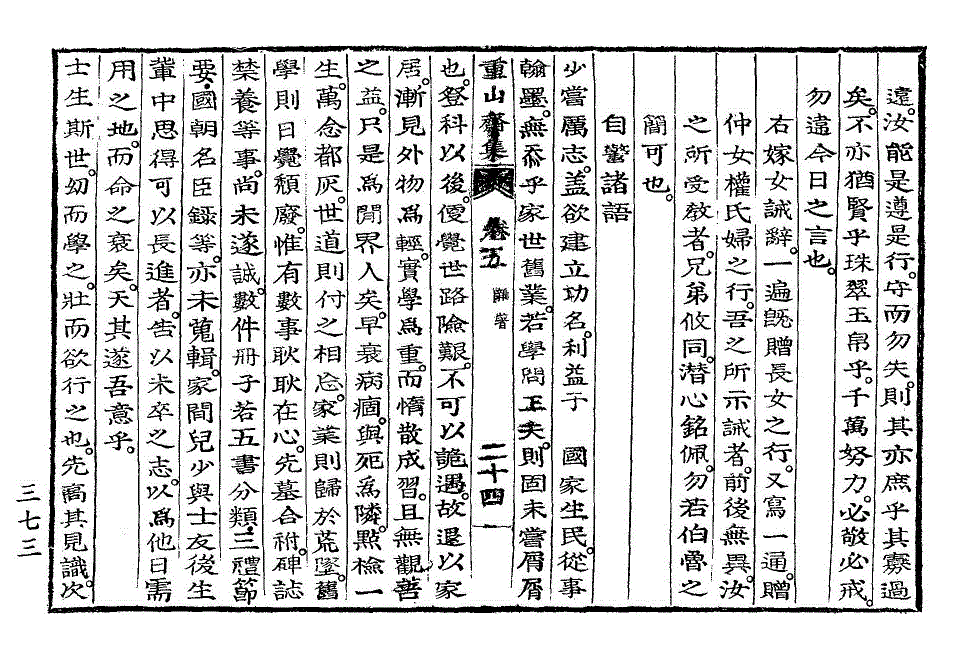 違汝能是遵是行守而勿失則其亦庶乎其寡過
矣不亦猶賢乎珠翠玉帛乎千萬努力必敬必戒
勿違今日之言也
右嫁女誡辭一遍旣贈長女之行又寫一通贈
仲女權氏婦之行吾之所示誡者前後無異汝
之所受敎者兄弟攸同潜心銘佩勿若伯魯之
簡可也
自警諸語
少嘗厲志蓋欲建立功名利益于 國家生民從事
翰墨無忝乎家世舊業若學問工夫則固未嘗屑屑
重山齋集 卷五 雜著 二十四
也登科以後便覺世路險艱不可以詭遇故退以家
居漸見外物爲輕實學爲重而惰散成習且無觀善
之益只是爲閒界人矣早衰病痼與死爲隣點檢一
生萬念都灰世道則付之相忘家業則歸於荒墜舊
學則日覺頹廢惟有數事耿耿在心先墓合祔碑誌
禁養等事尙未遂誠數件册子若五書分類三禮節
要國朝名臣錄等亦未蒐輯家間兒少與士友後生
輩中思得可以長進者告以未卒之志以爲他日需
用之地而命之衰矣天其遂吾意乎
士生斯世幼而學之壯而欲行之也先高其見識次
三七三